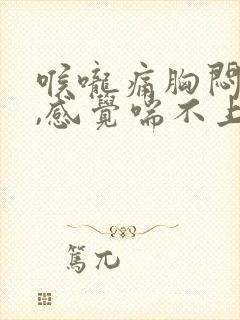 喉嚨痛胸悶
,感覺喘不上
篤兀